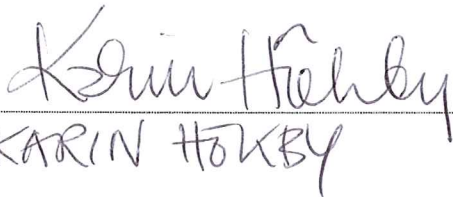 Karin Hökby
KARIN HÖKBY